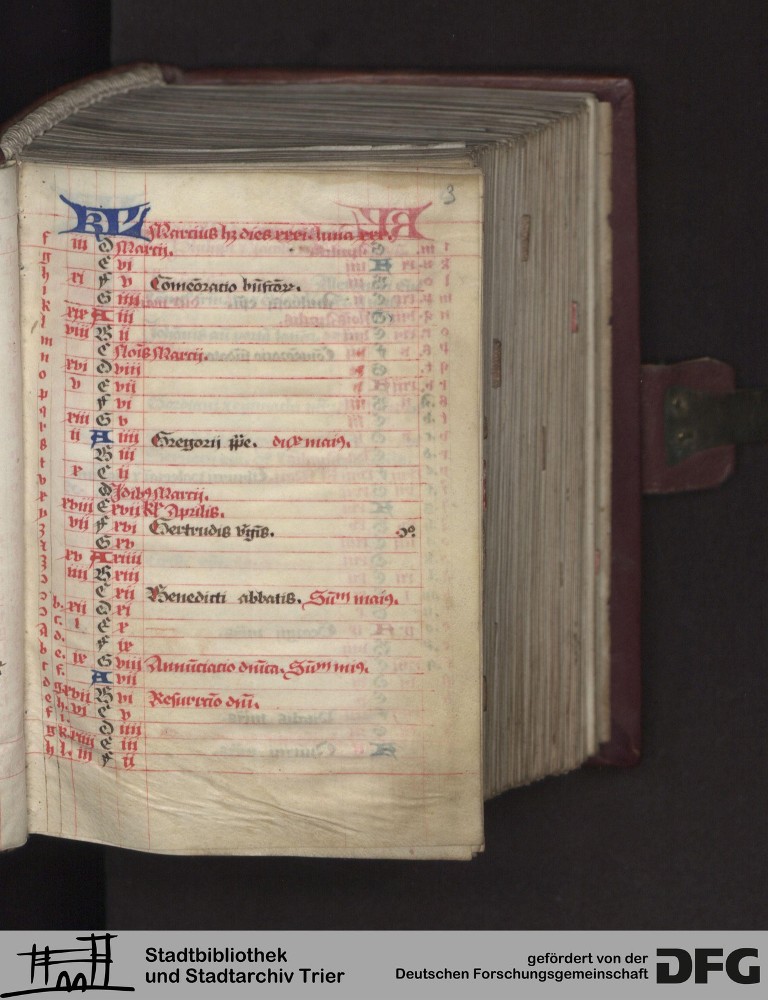 3
KL Marcius hꝫ dies xxxi luna xxx.
f iii D Marcij.
g E vi
h xi F v Cōmeōratio bn̄fctōrꝫ.
i G iiii
k xix A iii
l viii B ii
m C Noīs Marcij.
n xvi D viii
o v E vii
p F vi
q xiii G v
r ii A iiii Gregorij ppe. duplex maiꝰ.
s B iii
t x C ii
v D Jdibꝰ Marcij.
x xviii E xvii kl Aprilis.
y vii F xvi Gertrudis v̄gīs.
G xv
xv A xiiii
iiii B xiii
C xii Benedicti abbatis. Sūm maiꝰ.
b. xii D xi
c. i E x
d. F ix
e. ix G viii Annūciatio dn̄ica. Sūm maiꝰ.
f. A vii
g. xvii B vi Resurrectio dn̄i.
h. vi C v
i. D iiii
k. xiiii E iii
l. iii F ii
Stadtbibliothek
und Stadtarchiv Trier
gefördert von der
Deutschen Forschungsgemeinschaft
DFG